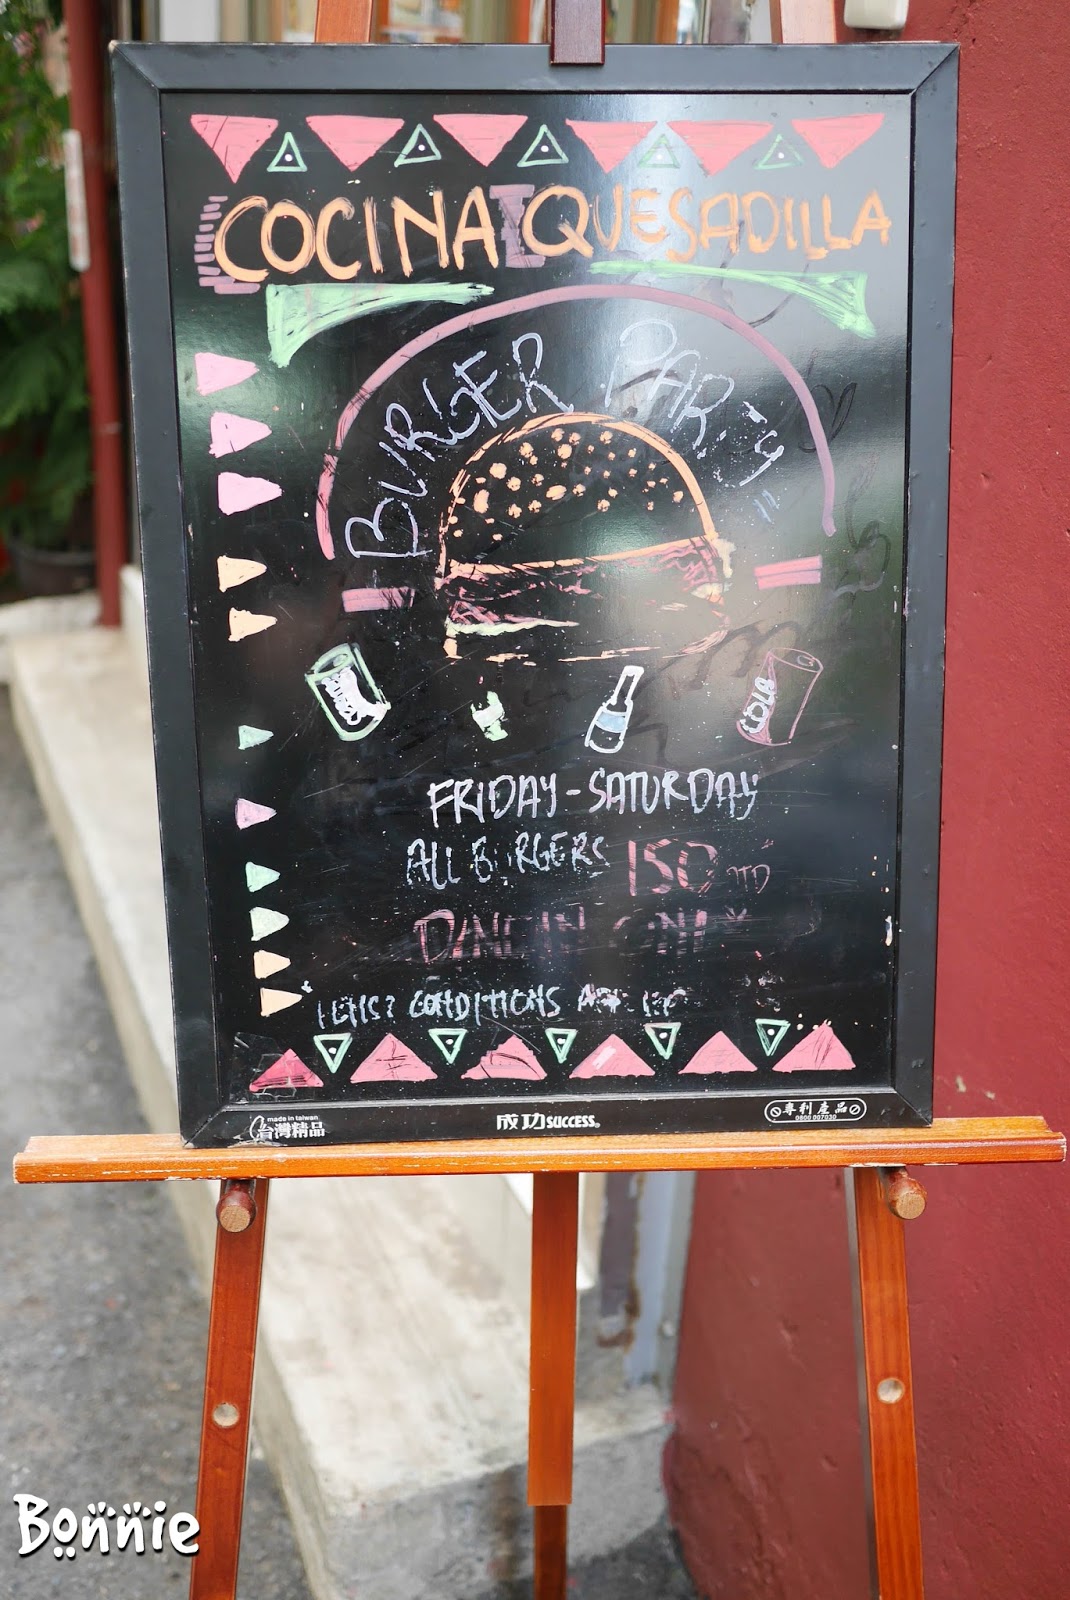 COCINA QUESADILLA
BURGER PARTY
COLA
FRIDAY - SATURDAY
ALL BURGERS 150 NTD
DINE IN ONLY
CONDITIONS
made in taiwan
台灣精品
成功 SUCCESS®
專利產品
0800 007030
Bonnie